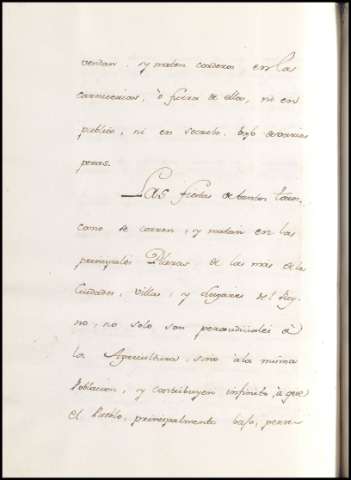 vendan, y maten corderos en las
carnicerias, ò fuera de ellas, ni en
publico, ni en secreto, bajo de varias
penas.
Las fiestas de tantos toros,
como se corren, y matan en las
principales Plazas de las mas de las
Ciudades, villas, y Lugares del Rey-
no, no solo son perjudiciales à
la Agricultura, sino ala misma
Poblacion, y contribuyen infinito à que
el Pueblo, principalmente bajo, perma-